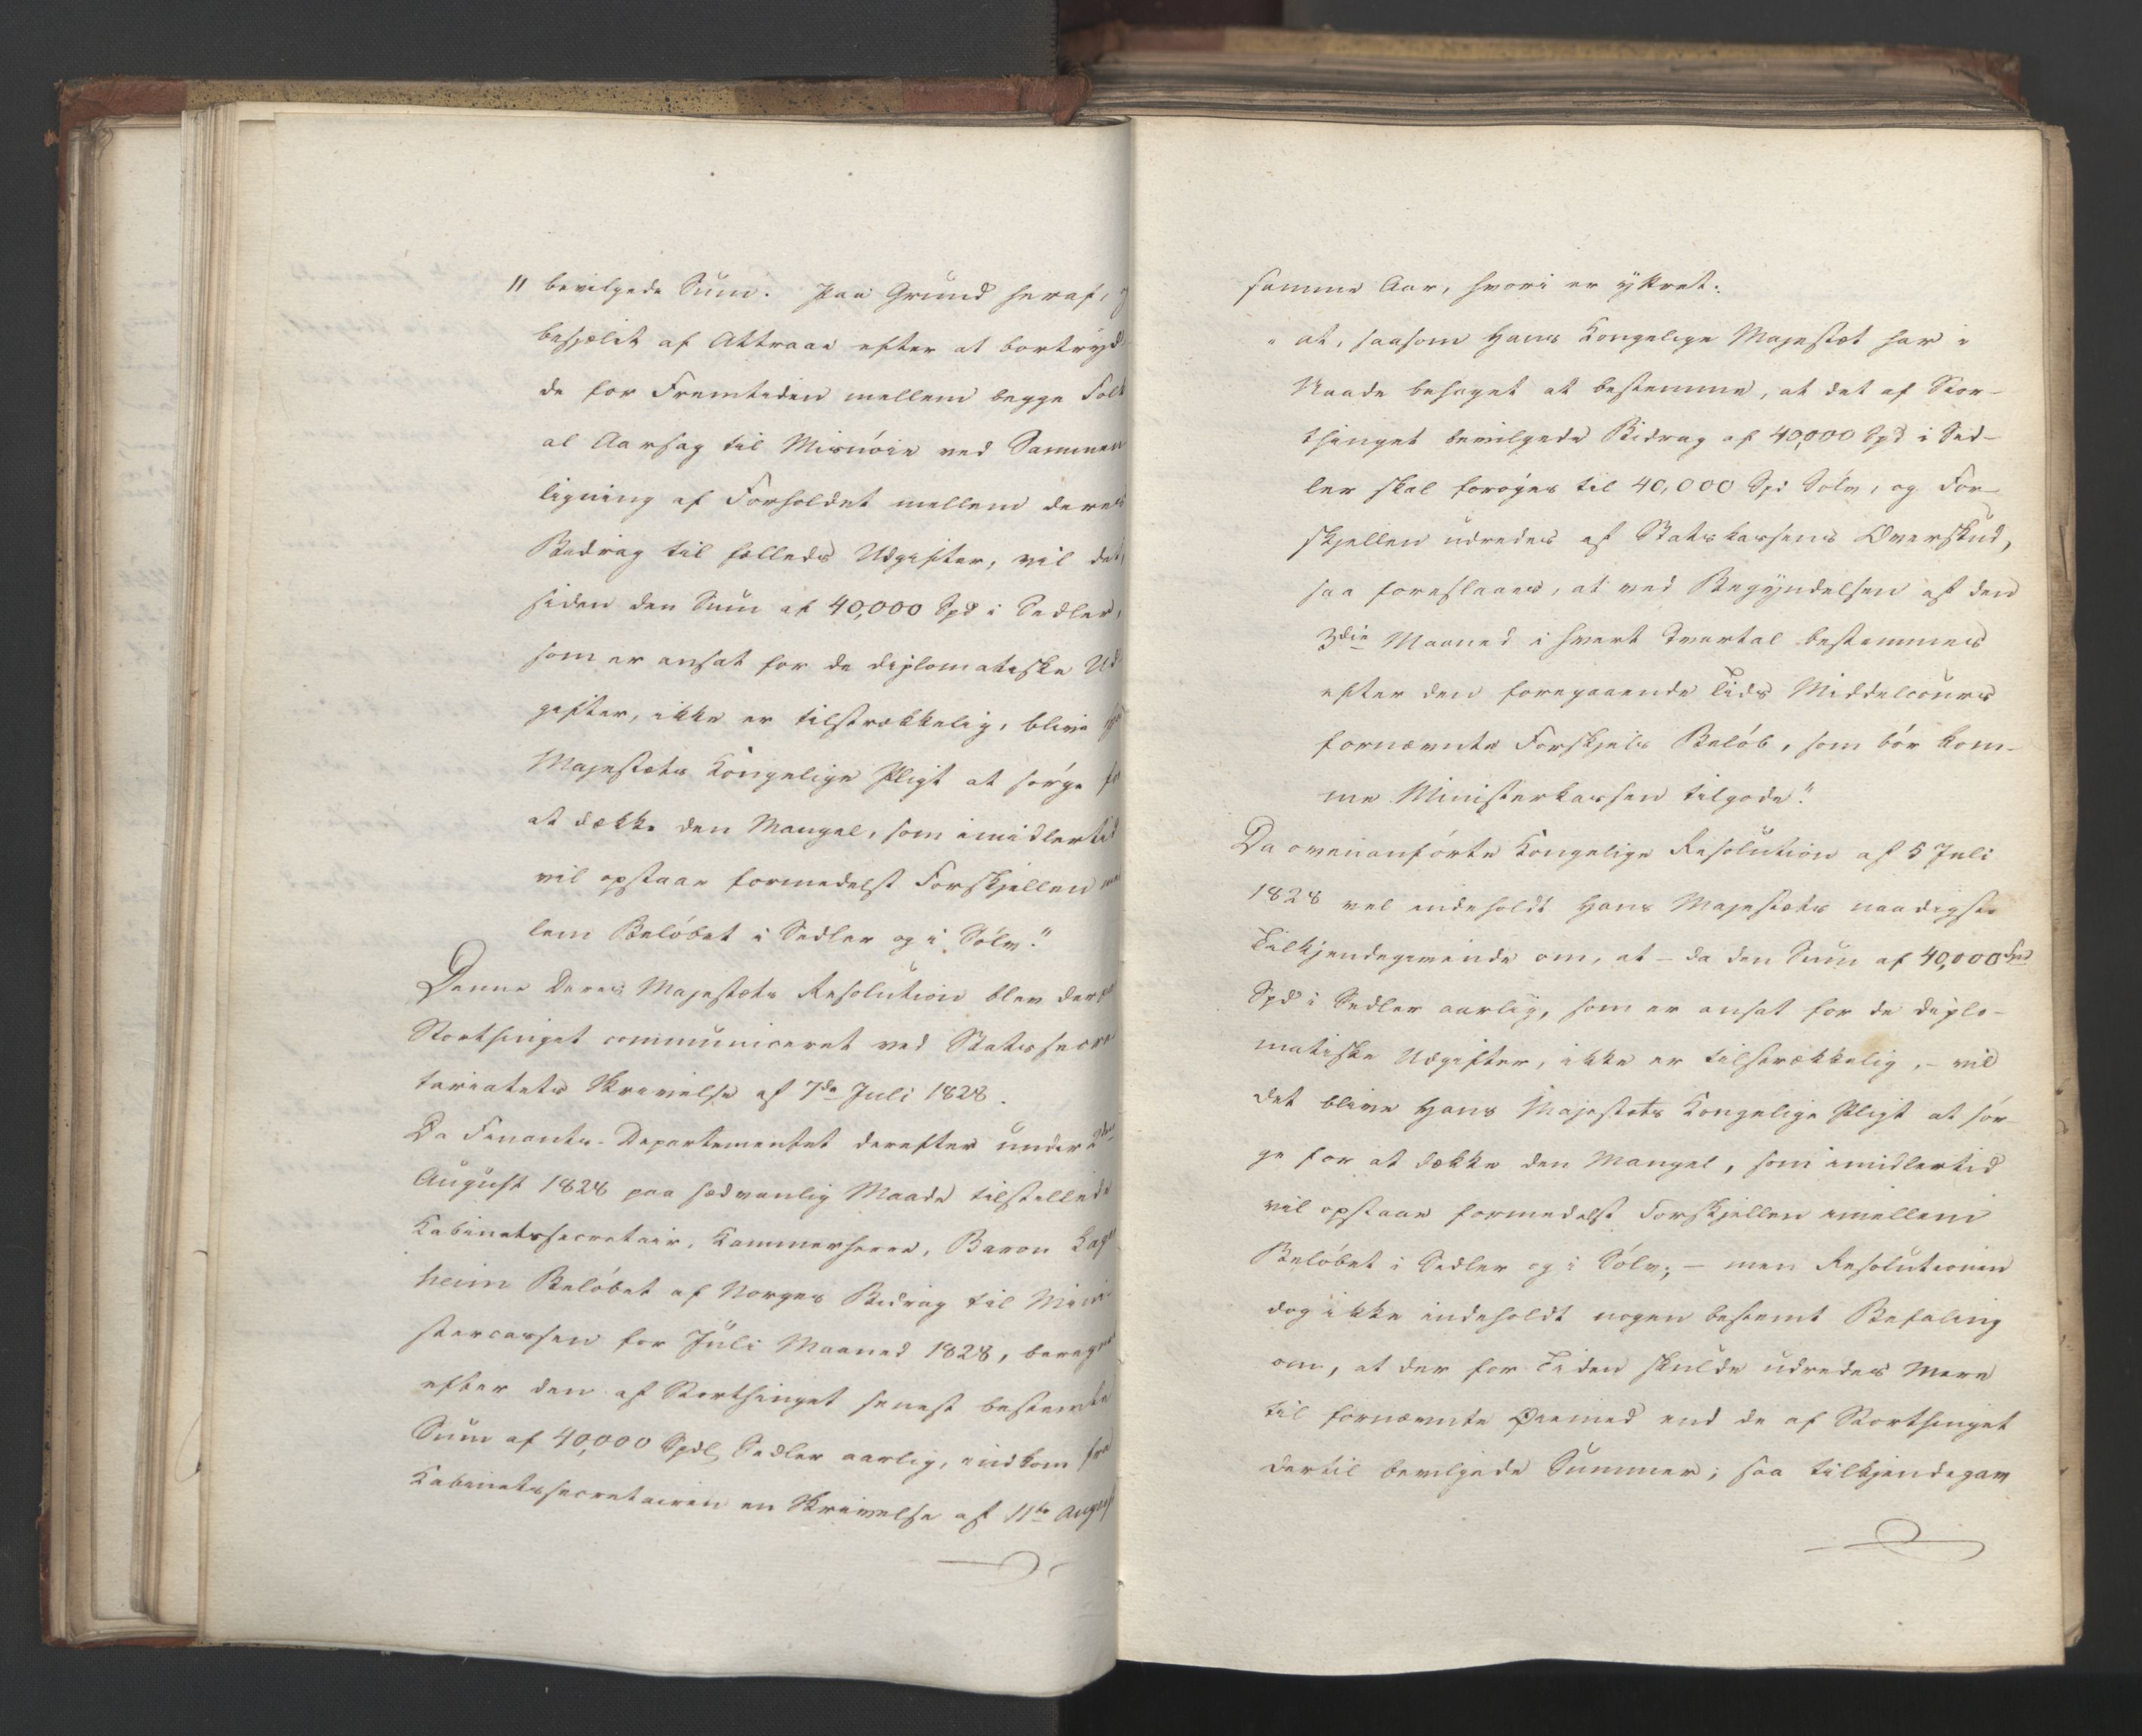 " bevilgede Sum. Paa Grund heraf,
besjælet af Attraae efter at bortryd-
de for Fremtiden mellem begge Folk
al Aarsag til Misnöie ved Sammen
ligning af Forholdet mellem deres
Bidrag til fælleds Udgifter, vil det,
siden den Sum af 40,000 Spd i Sedler,
som er ansat for de diplomatiske Ud
gifter, ikke er tilstrækkelig, blive
Majestæts Kongelige Pligt at sörge for
at dække den Mangel, som imidlertid
vil opstaae formedelst Forskjellen mel
lem Belöbet i Sedler og i Sölv."
Denne Deres Majestæts Resolution blev derpaa
Storthinget communiceret ved Statssecre
tariatets Skrivelse af 7de Juli 1828.
Da Finants-Departementet derefter under 2den
August 1828 paa sædvanlig Maade tilstillede
Kabinetssecretair, Kammerherre, Baron Lager
heim Belöbet af Norges Bidrag til Mini-
stercassen for Juli Maaned 1828, beregnet
efter den af Storthinget senest bestemte
Sum af 40,000 Spdlr Sedler aarlig, indkom fra
Kabinetssecretairen en Skrivelse af 11te August
samme Aar, hvori er yttret:
" at, saasom Hans Kongelige Majestæt har i
Naade behaget at bestemme, at det af Stor-
thinget bevilgede Bidrag af 40,000 Spd i Sed-
ler skal foröges til 40,000 Spd Sölv, og For-
skjellen udredes af Statskassens Overskud,
saa foreslaaes, at ved Begyndelsen af den
3die Maaned i hvert Qvartal bestemmes
efter den foregaaende Tids Middelcours
fornævnte Forskjels Belöb, som bör kom-
me Ministerkassen tilgode."
Da ovenanförte Kongelige Resolution af 5 Juli
1828 vel indeholdt Hans Majestæts naadigste
Tilkjendegivende om, at – da den Sum af 40,000
Spd i Sedler aarlig, som er ansat for de diplo-
matiske Udgifter, ikke er tilstrækkelig, – vil
det blive Hans Majestæts Kongelige Pligt at sör-
ge for at dække den Mangel, som imidlertid
vil opstaae formedelst Forskjellen imellem
Belöbet i Sedler og i Sölv; – men Resolutionen
dog ikke indeholdt nogen bestemt Befaling
om, at der for Tiden skulde udredes mere
til fornævnte Øiemed end de af Storthinget
dertil bevilgede Summer; saa tilkjendegav